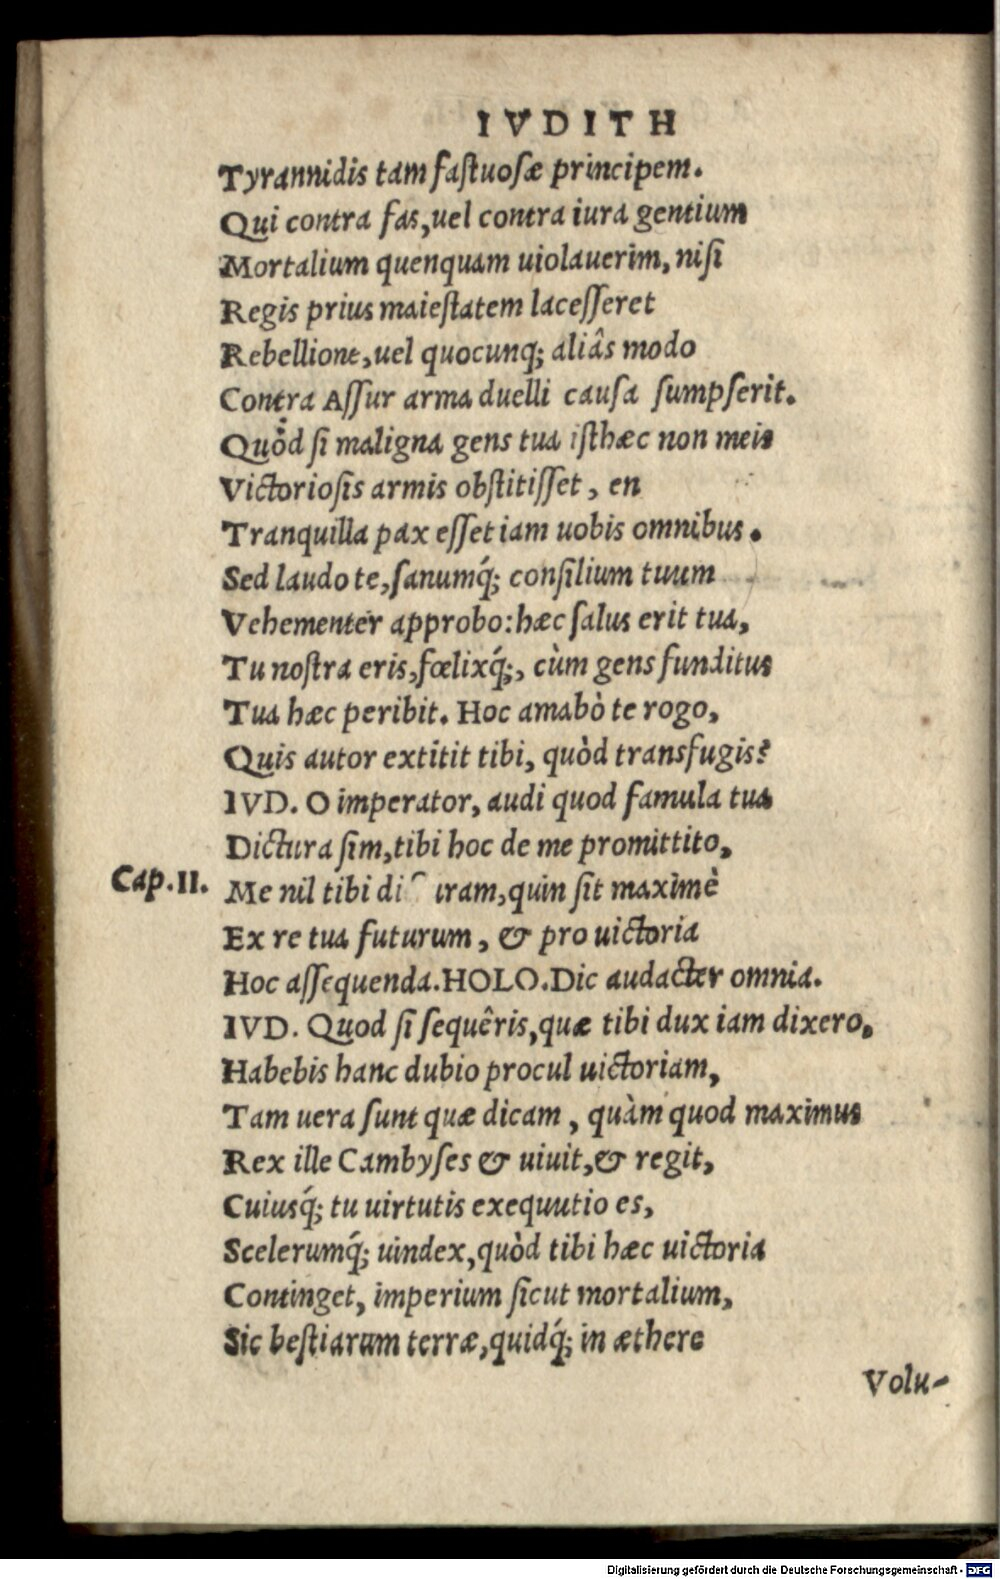 IVDITH
Tyrannidis tam faſtuoſæ principem.
Qui contra fas,uel contra iura gentium
Mortalium quenquam uiolauerim, niſi
Regis prius maieſtatem laceſſeret
Rebellione,uel quocunq; aliâs modo
Contra Aſſur arma duelli cauſa ſumpſerit.
Quòd ſi maligna gens tua iſthæc non meis
Victorioſis armis obſtitiſſet, en
Tranquilla pax eſſet iam uobis omnibus.
Sed laudo te,ſanumq́; conſilium tuum
Vehementer approbo:hæc ſalus erit tua,
Tu noſtra eris,fœlixq́;, cùm gens funditus
Tua hæc peribit. Hoc amabò te rogo,
Quis autor extitit tibi, quòd transfugis?
IVD. O imperator, audi quod famula tua
Dictura ſim,tibi hoc de me promittito,
Cap.II. Me nil tibi uram,quin ſit maximè
Ex re tua futurum, & pro uictoria
Hoc aſſequenda.HOLO.Dic audacter omnia.
IVD. Quod ſi ſequêris,quæ tibi dux iam dixero,
Habebis hanc dubio procul uictoriam,
Tam uera ſunt quæ dicam, quàm quod maximus
Rex ille Cambyſes & uiuit,& regit,
Cuiusq́; tu uirtutis exequutio es,
Scelerumq́; uindex,quòd tibi hæc uictoria
Continget, imperium ſicut mortalium,
Sic beſtiarum terræ,quidq́; in æthere
Volu-
Digitalisierung gefördert durch die Deutsche Forschungsgemeinschaft - DFG